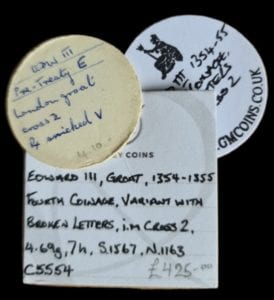 EDW III
Pre-Treaty E
London groat
cross 2
& nicked V
EDW III 1354-55
CROSS 2
GMCOINS
COINS
EDWARD III, GROAT, 1354-1355
FOURTH COINAGE, VARIANT WITH
BROKEN LETTERS, I.M CROSS 2,
4.69g, 7h, S.1567, N.1163
C5554
£425-00